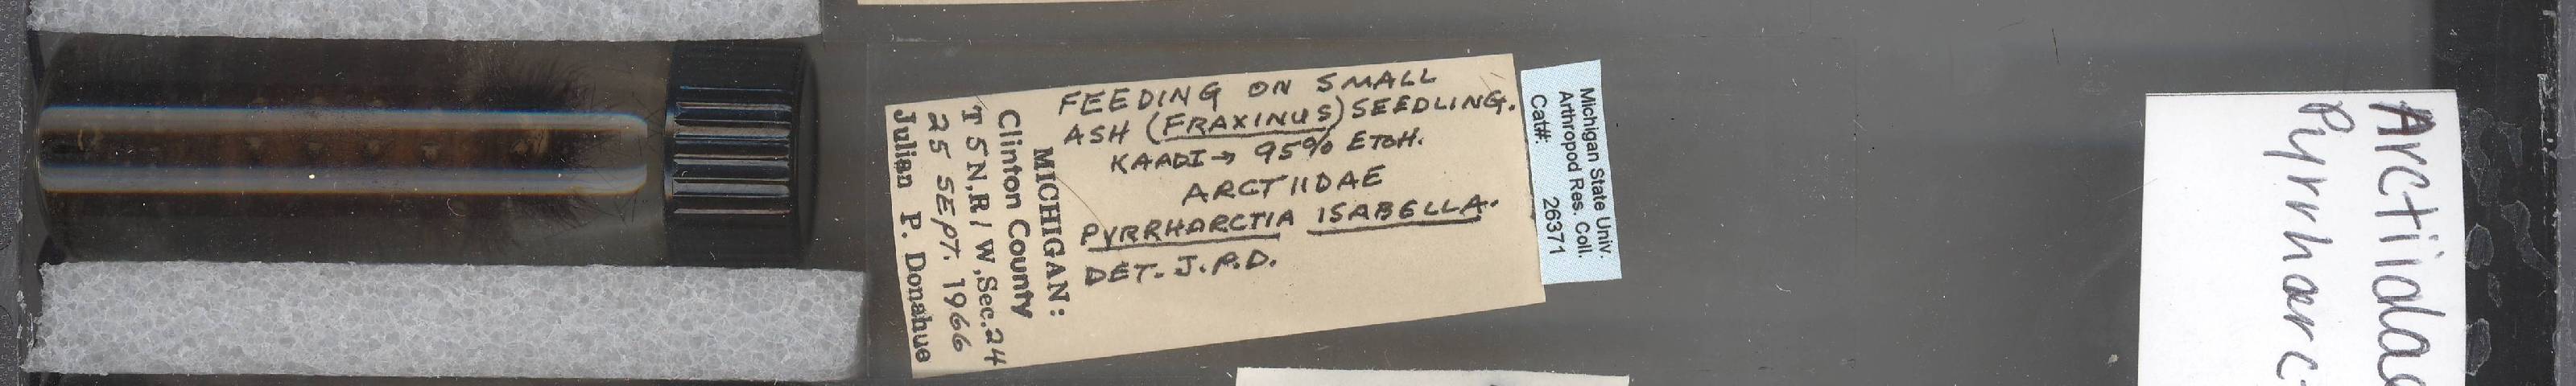 FEEDING ON SMALL
ASH (FRAXINUS) SEEDLING.
KAADI → 95% ETOH.
ARCTIIDAE
PYRRHARCTIA ISABELLA.
DET. J.P.D.
MICHIGAN:
Clinton County
T5N,R1W,Sec.24
25 SEPT. 1966
Julian P. Donahue
Michigan State Univ.
Arthropod Res. Coll.
Cat#: 26371
Arctiidae
Pyrrharc